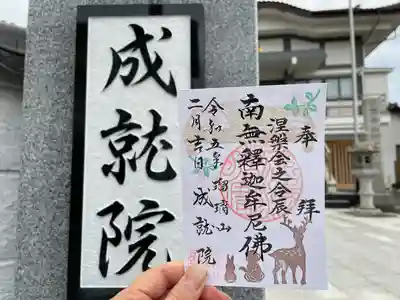 成就院
奉拝
涅槃会之今辰
南無釋迦牟尼佛
令和五年 瑠璃山
二月吉日 成就院